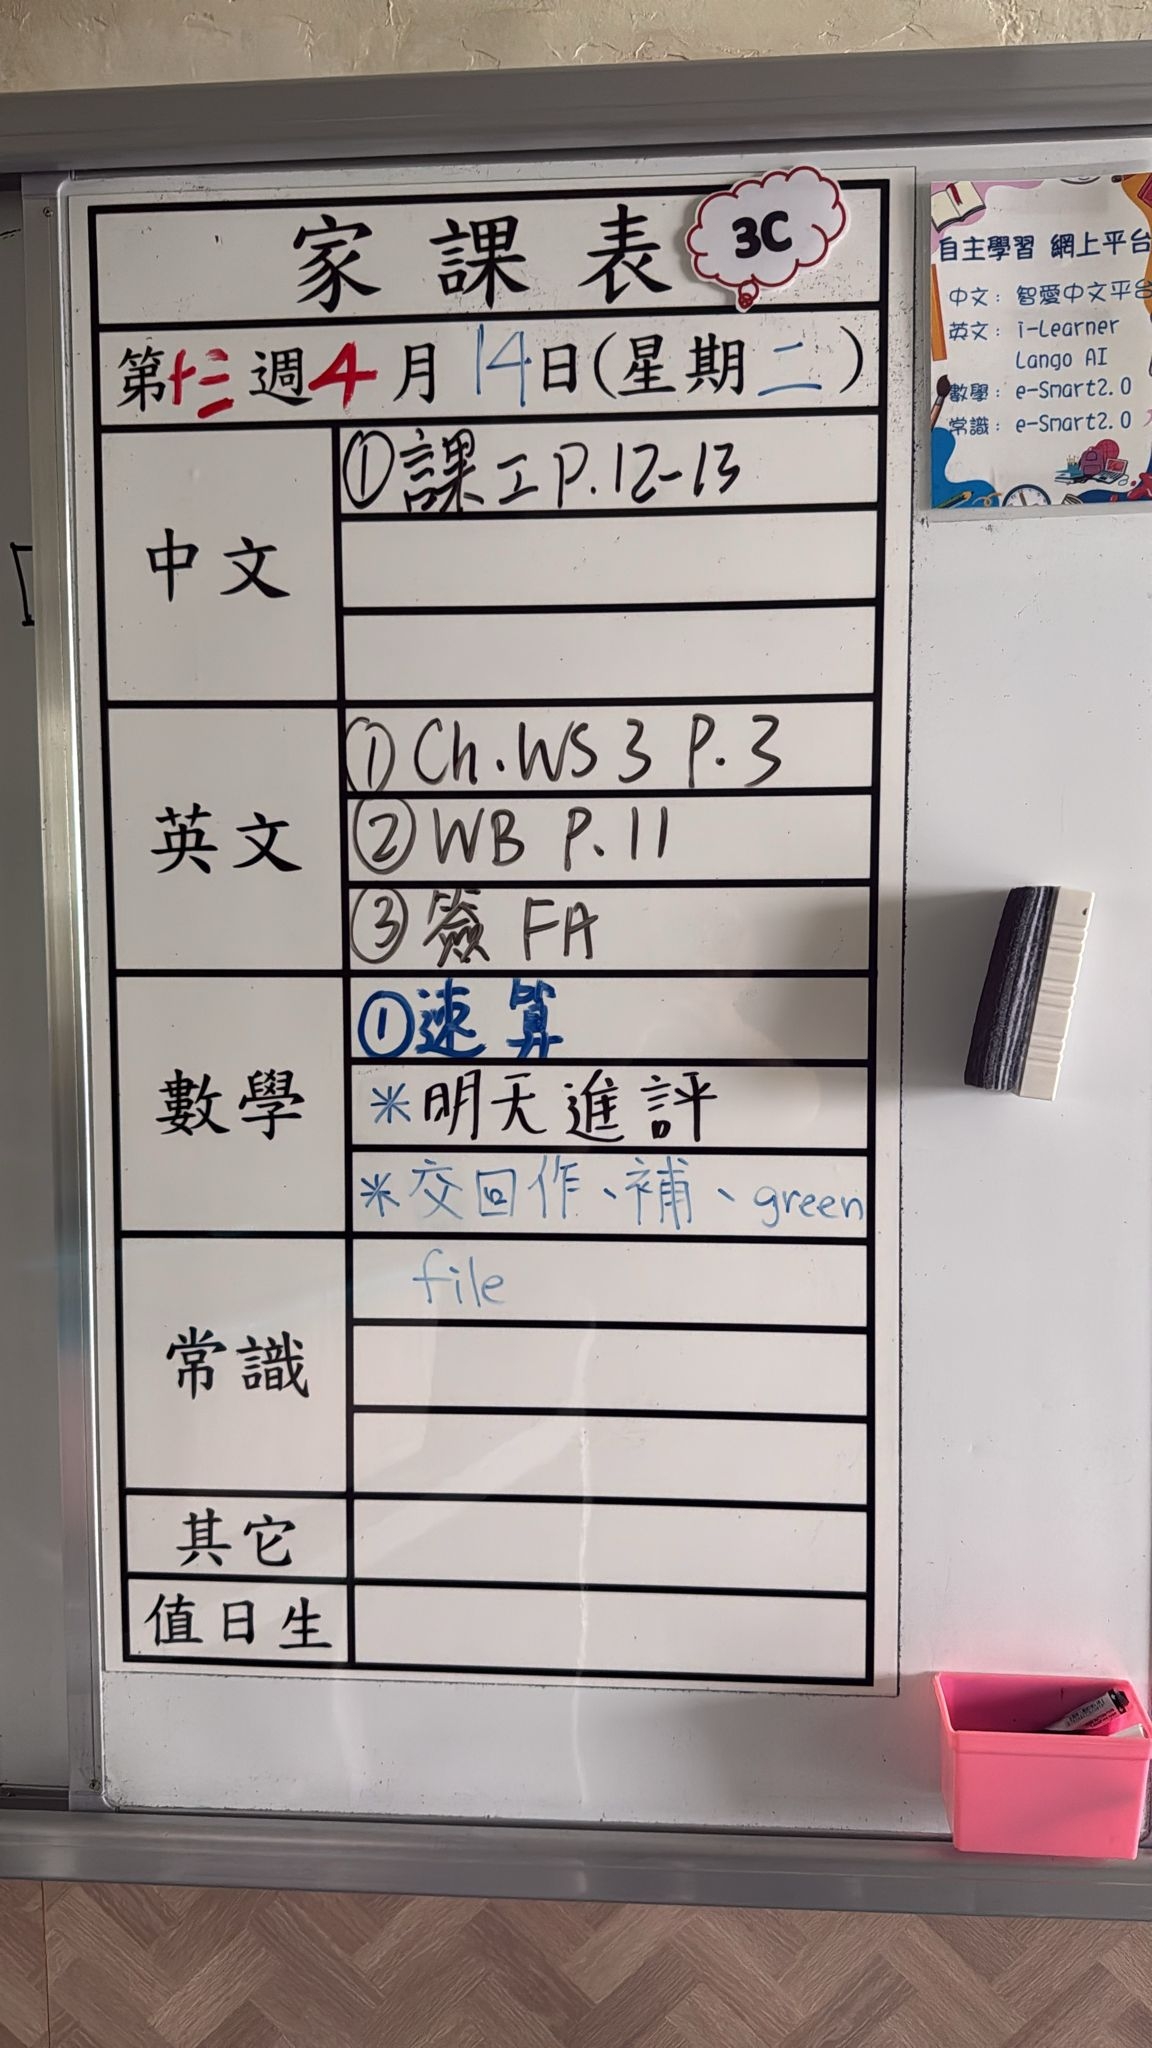 家課表
3C
第十三週4月14日(星期二)
中文
①課工P.12-13
英文
①Ch.WS 3 P.3
②WB P.11
③簽 FA
數學
①速算
*明天進評
*交回作、補、green
file
常識
其它
值日生
自主學習 網上平台
中文：智愛中文平台
英文：i-Learner
Lango AI
數學：e-Smart2.0
常識：e-Smart2.0